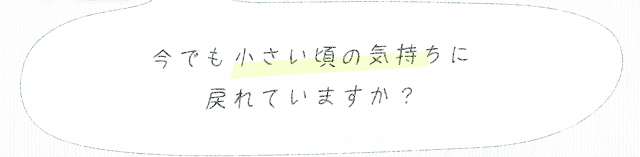 今でも小さい頃の気持ちに
戻れていますか？